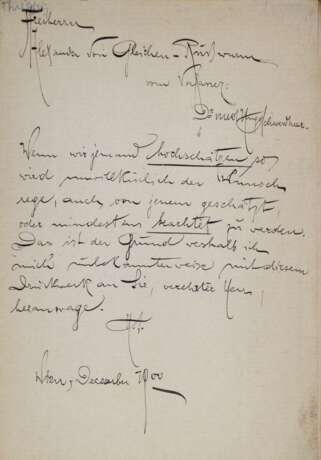 Freiherrn
Alexander von Gleichen-Rußwurm
vom Verfasser:
Dr med H
Wenn wir jemand hochschätzen so
wird unwillkürlich der Wunsch
rege, auch von jenem geschätzt,
oder mindestens beachtet zu werden.
Das ist der Grund weshalb ich
mich unbekannterweise mit diesem
Druckwerk an Sie, verehrter Herr,
heranwage.
Wien, December 900